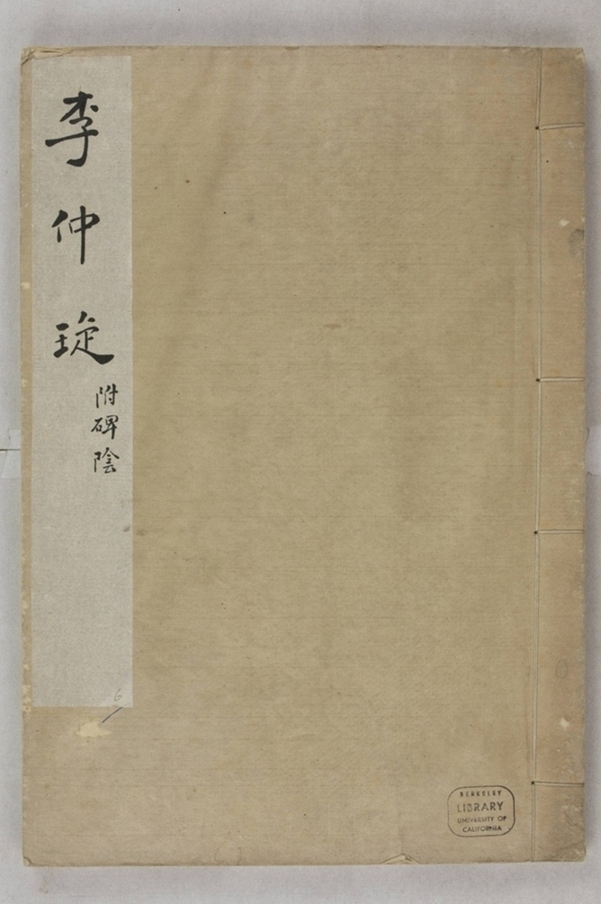 李仲琁
附碑陰
6
BERKELEY
LIBRARY
UNIVERSITY OF
CALIFORNIA